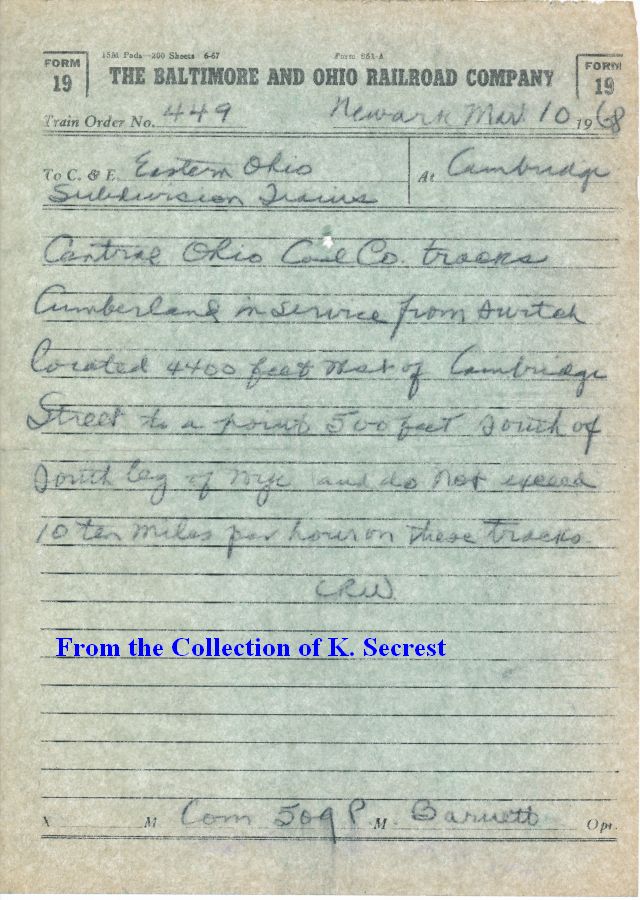 FORM 19
15M Pads—200 Sheets 6-67 Form 861-A
FORM 19
THE BALTIMORE AND OHIO RAILROAD COMPANY
Train Order No. 449 Newark Mar. 10 1968
To C. & E. Eastern Ohio At Cambridge
Subdivision Trains
Central Ohio Coal Co. tracks
Cumberland in service from switch
located 4400 feet West of Cambridge
Street to a point 500 feet South of
South leg of Wye and do not exceed
10 ten miles per hour on these tracks
CRW
From the Collection of K. Secrest
X M Com 509 P. M Barnett Opr.